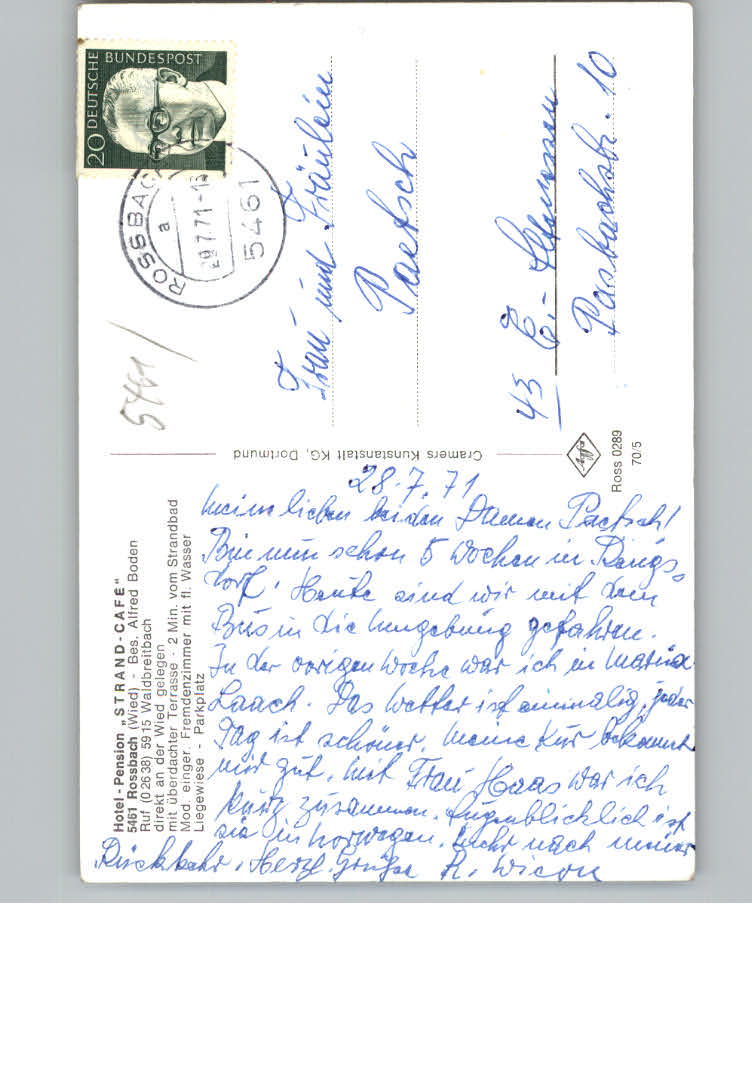 Hotel-Pension „STRAND-CAFE"
5461 Rossbach (Wied) - Bes. Alfred Boden
Ruf (02638) 5915 Waldbreitbach
direkt an der Wied gelegen
mit überdachter Terrasse - 2 Min. vom Strandbad
Mod. einger. Fremdenzimmer mit fl. Wasser
Liegewiese - Parkplatz
28.7.71
Meine lieben beiden Damen Paetsch!
Bin nun schon 5 Wochen in Rengs-
dorf. Heute sind wir mit dem
Bus in die Umgebung gefahren.
In der vorigen Woche war ich in Maria
Laach. Das Wetter ist einmalig, jeder
Tag ist schöner. Meine Kur bekommt
mir gut. Mit Frau Haas war ich
kurz zusammen. Augenblicklich ist
sie in Norwegen. Mehr nach meiner
Rückkehr. Herzl. Grüße
Cramers Kunstanstalt KG, Dortmund
Ross 0289
70/5
DEUTSCHE BUNDESPOST
20
ROSSBACH
a
29.7.71-1
5461
5461
Frau und Fräulein
Paetsch
43 E.-
10